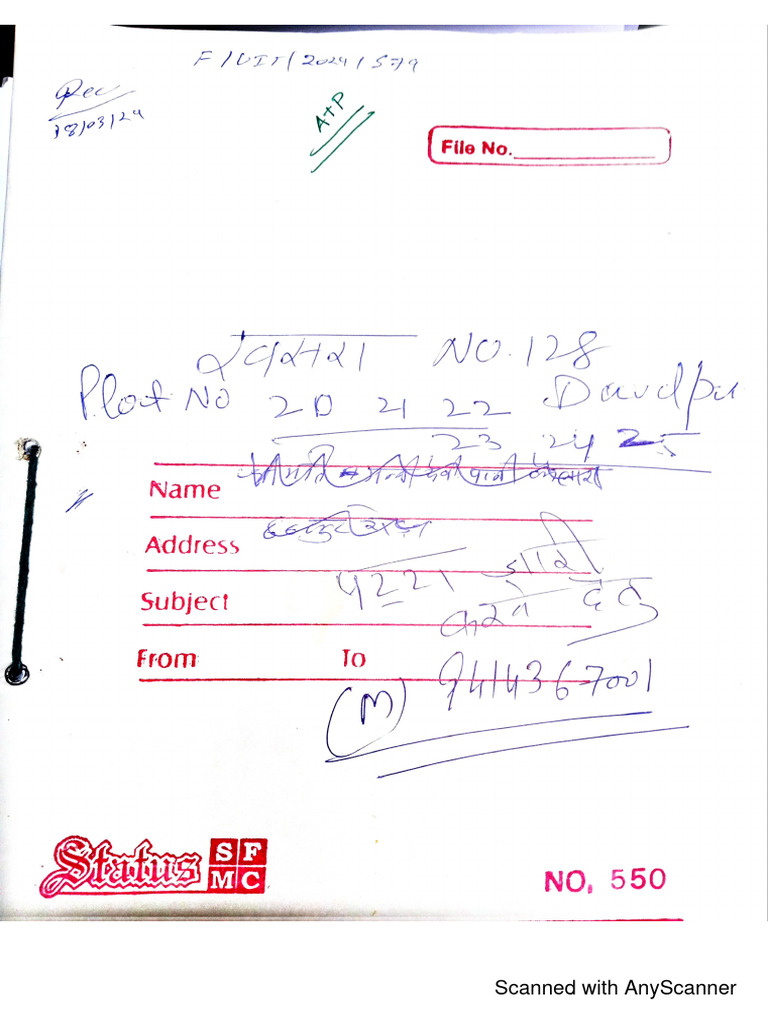 F/UIT/2024/579
Rec
18/03/24
A+P
File No.
खसरा NO. 128
Plot No 20 21 22 Daudpur
23 24 25
Name
Address
पट्टा जारी
Subject
करने हेतु
From To
(M) 9414367001
Status SFMC
NO. 550
Scanned with AnyScanner